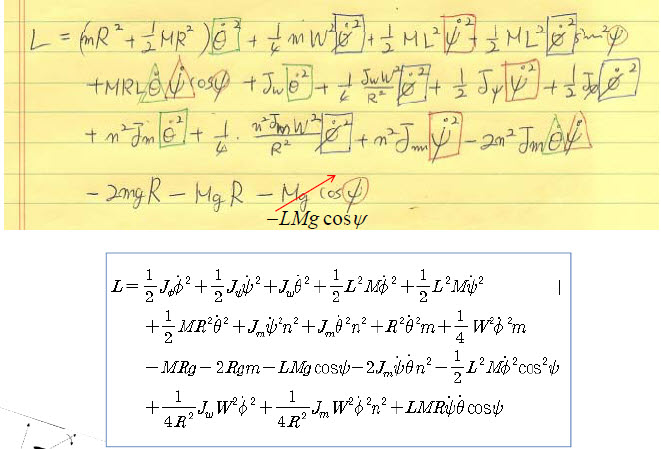 L = (mR² + 1/2 MR²) θ̇² + 1/4 mW² φ̇² + 1/2 ML² ψ̇² + 1/2 ML² φ̇² sin²ψ
+MRL θ̇ ψ̇ cosψ + J_w θ̇² + 1/4 J_wW²/R² φ̇² + 1/2 J_ψ ψ̇² + 1/2 J_φ φ̇²
+ n²J_m θ̇² + 1/4 · n²J_mW²/R² φ̇² + n²J_m ψ̇² − 2n²J_m θ̇ ψ̇
− 2mgR − MgR − Mg cosψ
−LMg cosψ
L = 1/2 J_φφ̇² + 1/2 J_ψψ̇² + J_wθ̇² + 1/2 L²Mφ̇² + 1/2 L²Mψ̇²
+ 1/2 MR²θ̇² + J_mψ̇²n² + J_mθ̇²n² + R²θ̇²m + 1/4 W²φ̇²m
−MRg−2Rgm−LMg cosψ−2J_mψ̇θ̇n² − 1/2 L²Mφ̇²cos²ψ
+ 1/4R² J_wW²φ̇² + 1/4R² J_mW²φ̇²n² + LMRψ̇θ̇cosψ